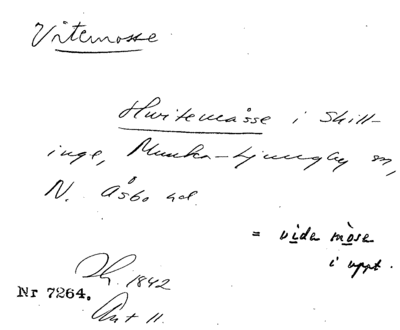 Vitemosse
Hwitemåsse i Skill-
inge, Munka-Ljungby sn,
N. Åsbo hd.
= vide mose
i uppt.
Th. 1842
Nr 7264.
Ant 11.